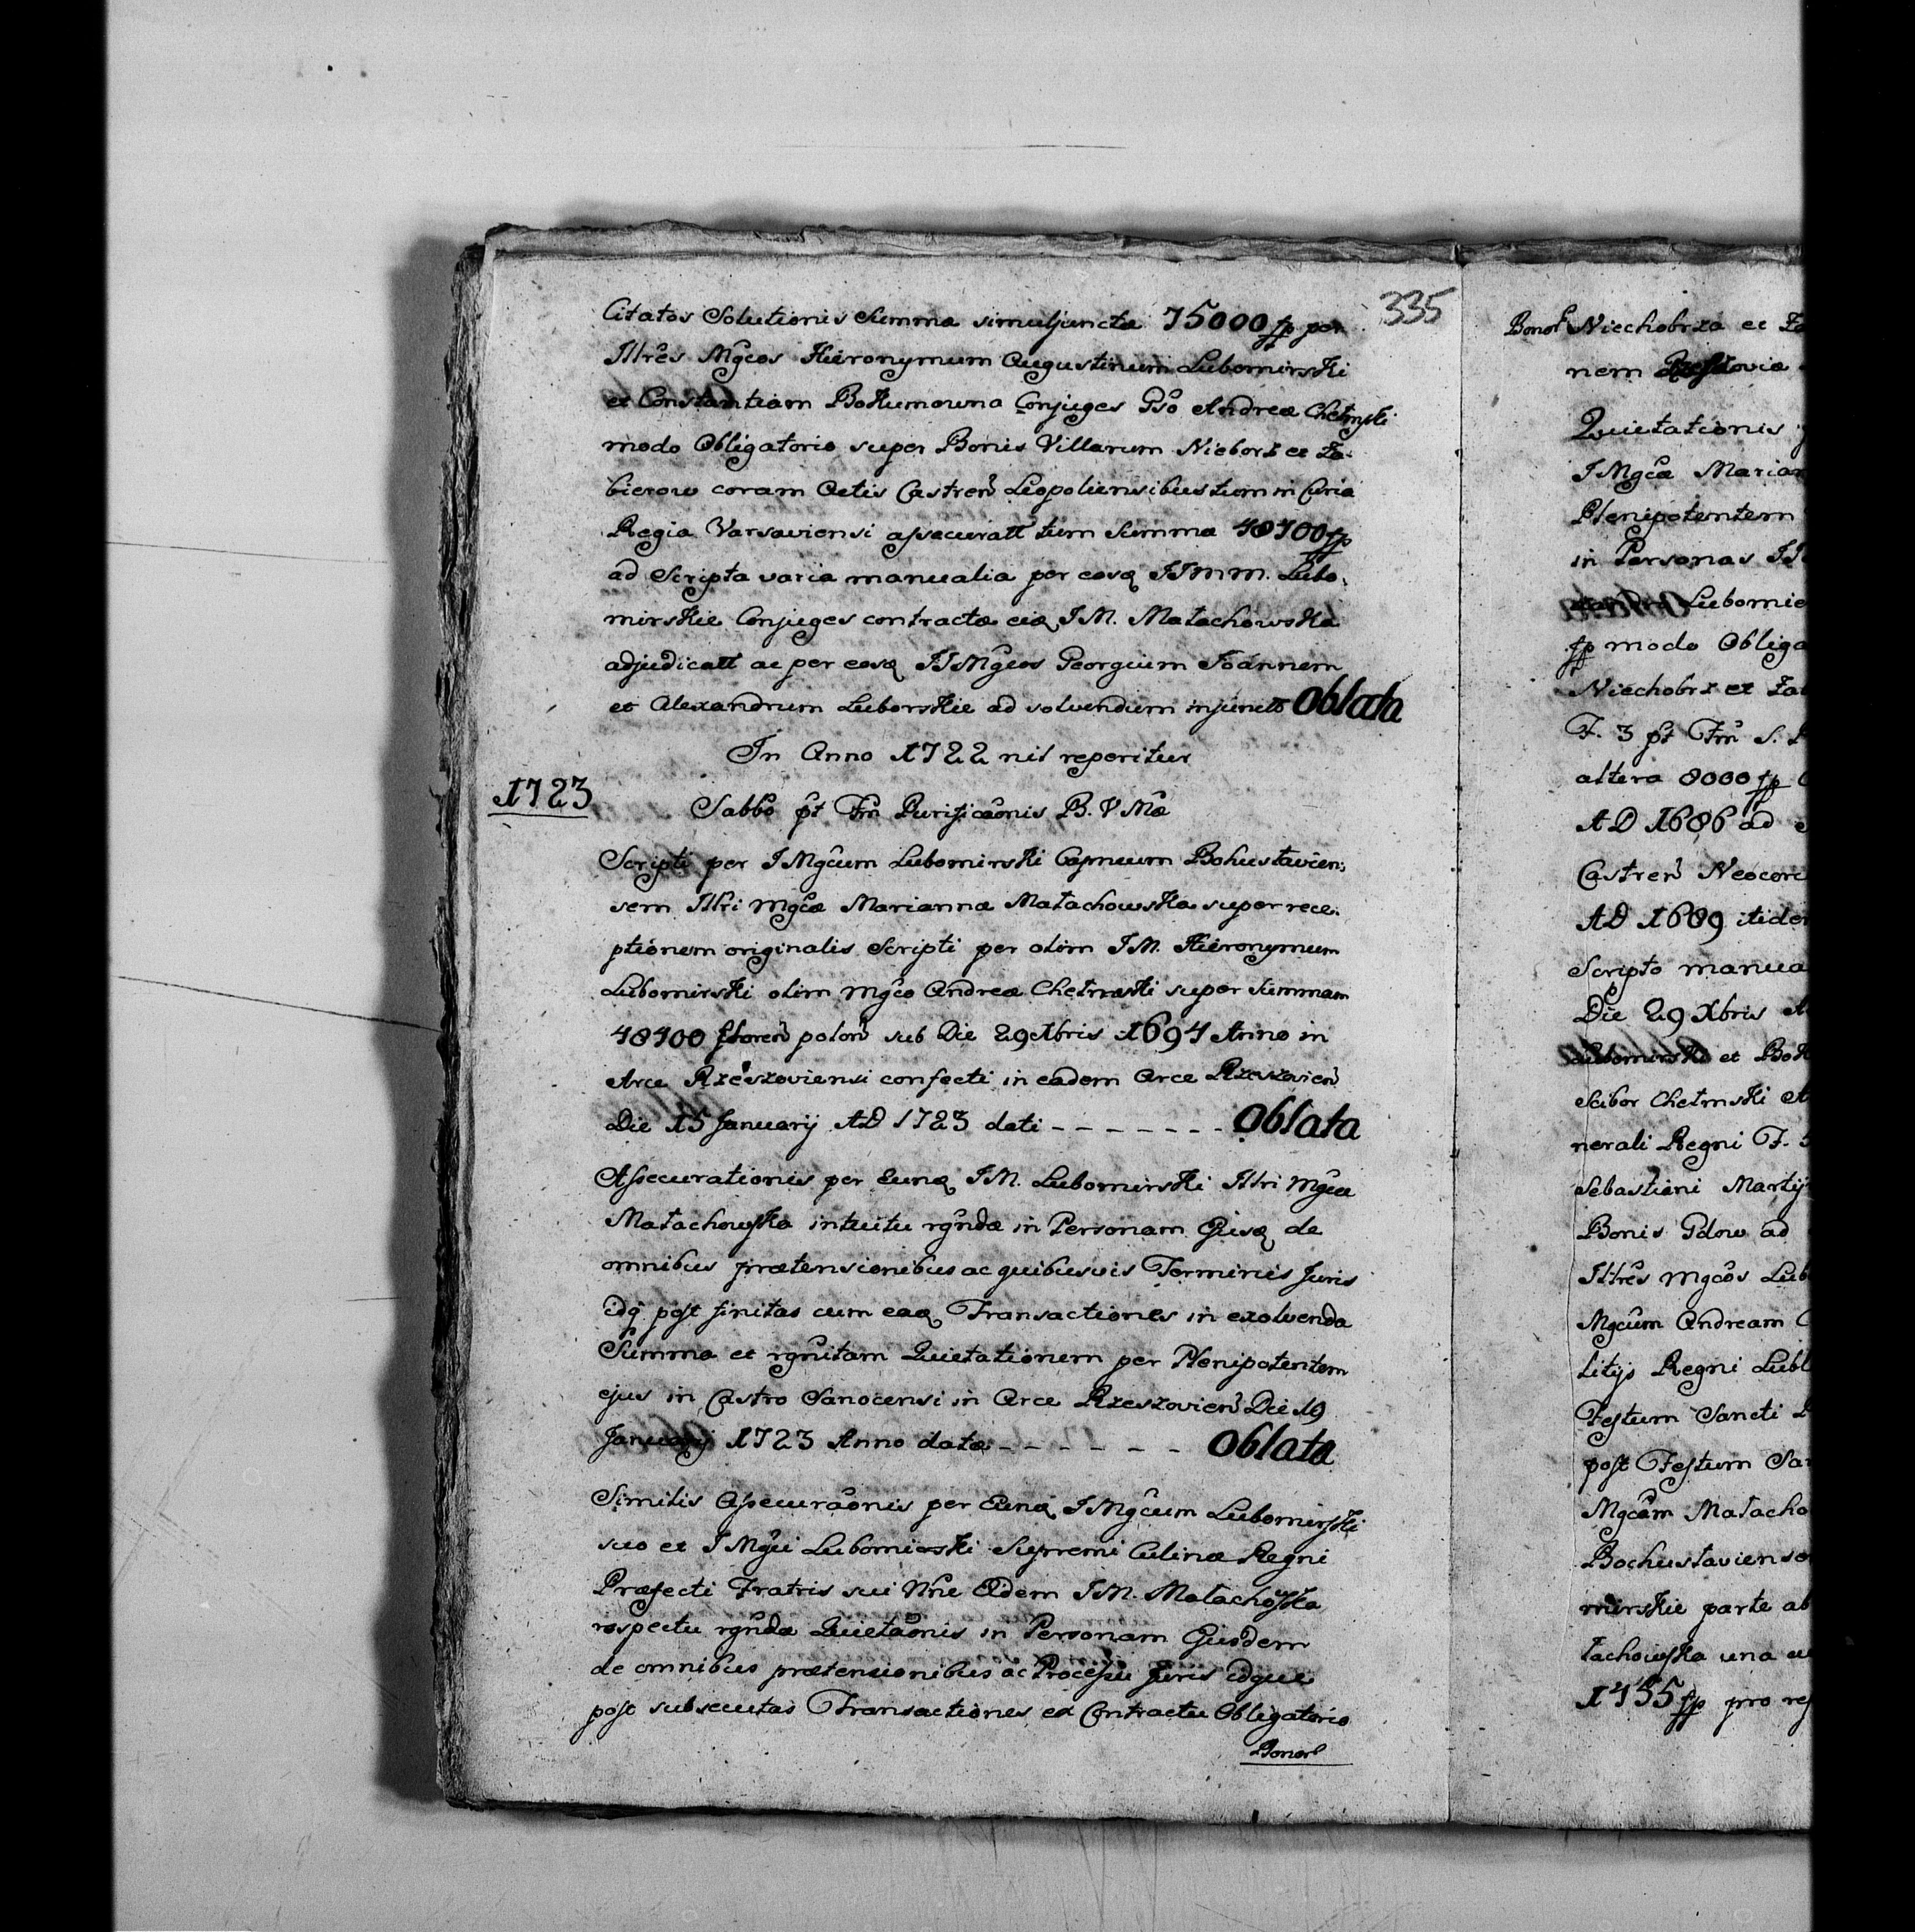 335
Citatos Solutionis Summæ simuljunctæ 75000 fp per
Illres Mgcos Hieronymum Augustinum Lubomirski
et Constantiam Bokumowna Conjuges Gso Andreæ Chełmski
modo Obligatorio super Bonis Villarum Nieborz et Za-
bierow coram Actis Castren Leopoliensibus tum in Curia
Regia Varsaviensi assecuratt tum Summæ 48400 fp
ad Scripta varia manualia per eosq IImm. Lubo-
mirskie Conjuges contractæ eiq IM. Małachowska
adjudicatt ac per eosq IIMgcos Georgium Joannem
et Alexandrum Luborskie ad solvendum injunctt Oblata
In Anno 1722 nil reperitur
1723
Sabbo pt Fm Purificaonis B. V Mæ
Scripti per IMgcum Lubomirski Capneum Bohusłavien-
sem Illri Mgcæ Mariannæ Małachowska super rece-
ptionem originalis Scripti per olim IM. Hieronymum
Lubomirski olim Mgco Andreæ Chełmski super Summam
48400 floren polon sub Die 29 Xbris 1694 Anno in
Arce Rzeszoviensi confecti in eadem Arce Rzeszovien
Die 15 Januarij AD 1723 dati - - - - - - - Oblata
Assecurationis per Eunq IM. Lubomirski Illri Mgcæ
Małachowska intuitu rgndæ in Personam Ejusq de
omnibus prætensionibus ac quibusvis Terminis Juris
idq post finitas cum eaq Transactiones in exolvenda
Summa et rgnitam Quietationem per Plenipotentem
ejus in Castro Sanocensi in Arce Rzeszovien Die 19
Januarij 1723 Anno datæ - - - - - - Oblata
Similis Assecuraonis per Eunq IMgcum Lubomirski
suo et IMgci Lubomirski Supremi Culinæ Regni
Præfecti Fratris sui Nne Eidem IM. Małachoska
respectu rgndæ Quietaonis in Personam Ejusdem
de omnibus prætensionibus ac Processu Juris idque
post subsecutas Transactiones ex Contractu Obligatorio
Bonor
Bonor Niechobrza et Za
nem
Quietationis
IMgcæ Marian
Plenipotentem
in Personas II
Lubomir
fp modo Obliga
Niechobrz et Za
F. 3 pt Fm S.
altera 8000 fp
AD 1686 ad
Castren Neocorc
AD 1689 itide
Scripto manua
Die 29 Xbris A
Lubomirski et Bok
Scibor Chełmski
nerali Regni F.
Sebastiani Martij
Bonis Gdow ad
Illres Mgcos Lub
Mgcum Andream
litijs Regni Lubl
Festum Sancti
post Festum San
Mgcam Małacho
Bochusłaviense
mirskie parte ab
łachowska una cu
1455 fp pro res